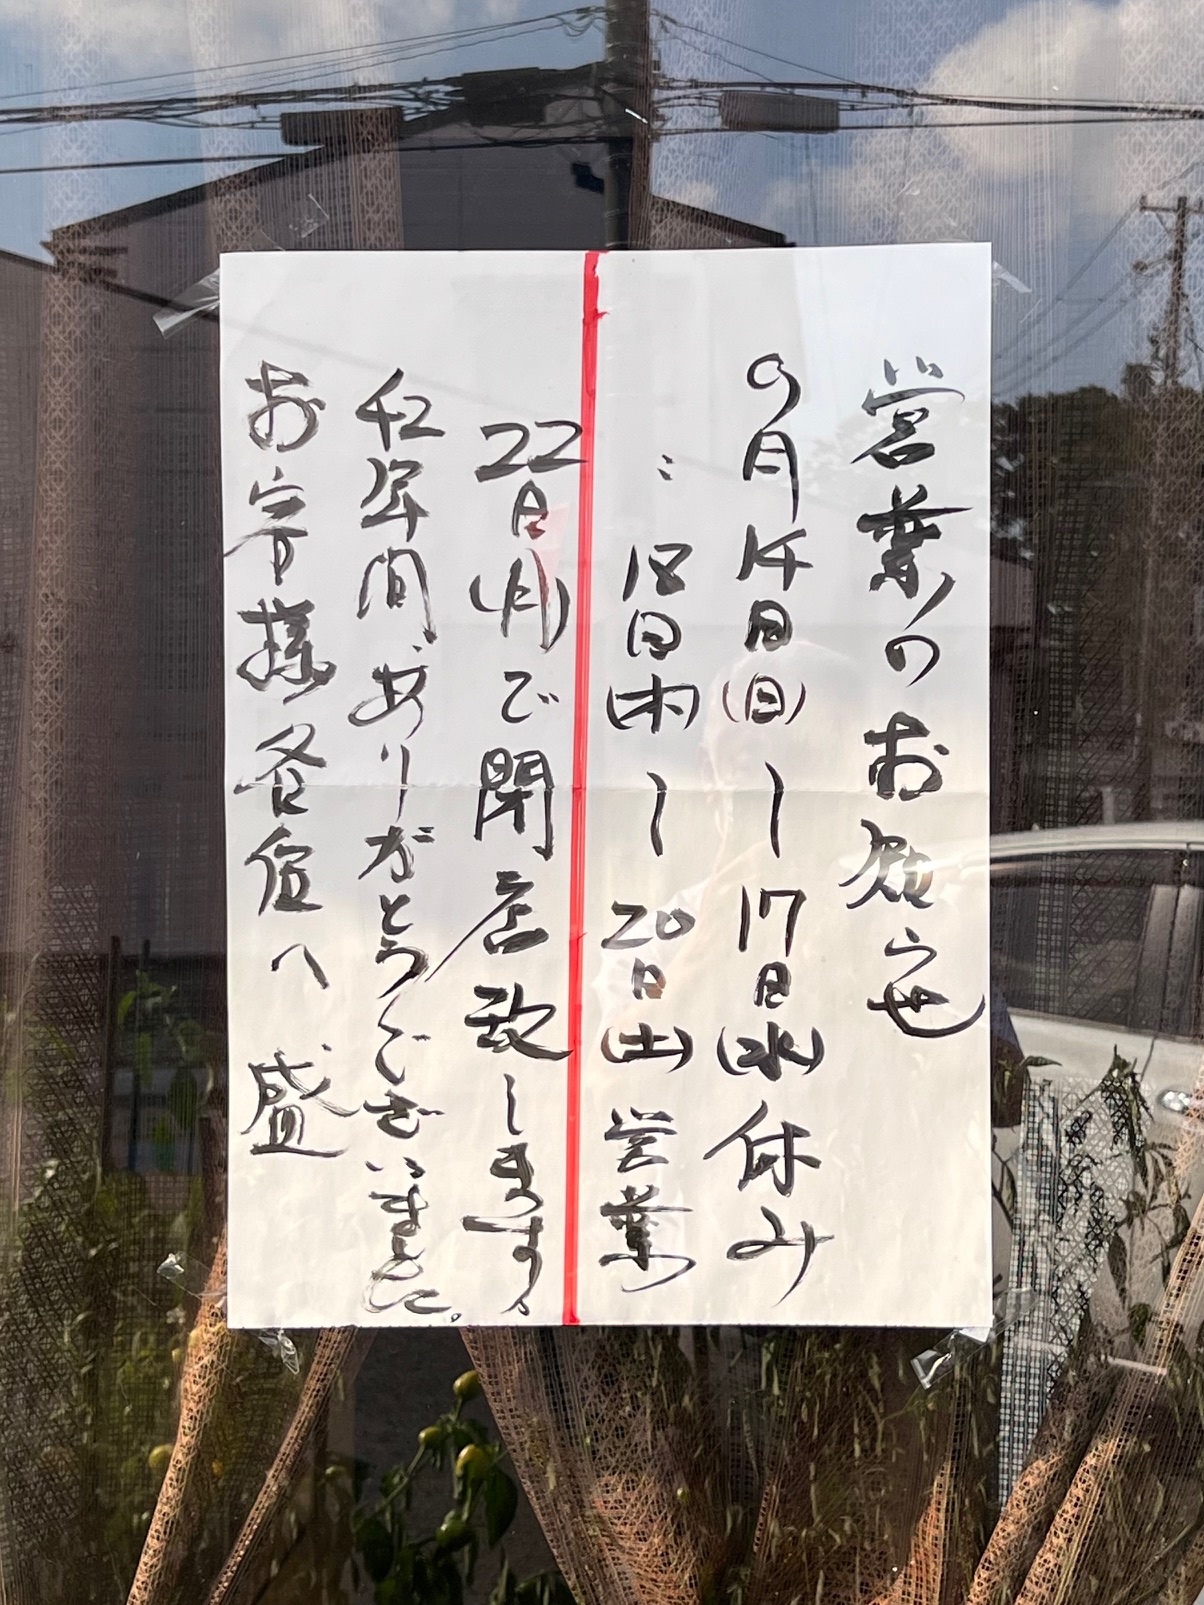 営業のお知らせ
9月14日(日)〜17日(水)休み
〃 18日(木)〜20日(土)営業
22日(月)で閉店致します。
42年間、ありがとうございました。
お客様各位へ 盛